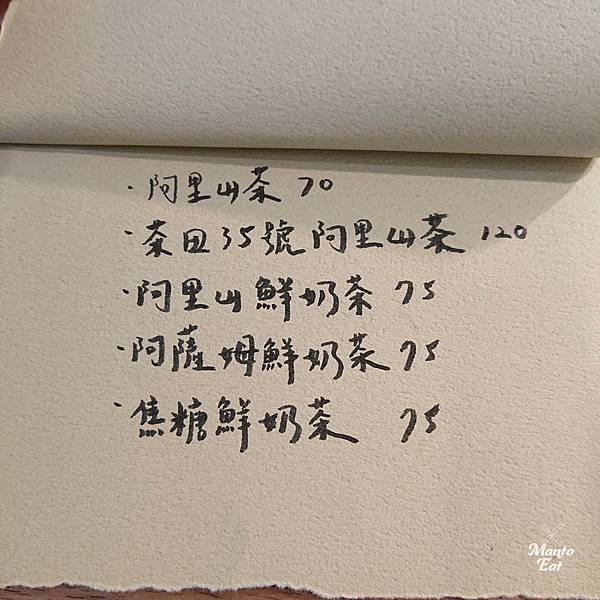 · 阿里山茶 70
· 茶田35號阿里山茶 120
· 阿里山鮮奶茶 75
· 阿薩姆鮮奶茶 75
· 焦糖鮮奶茶 75
Manto
Eat